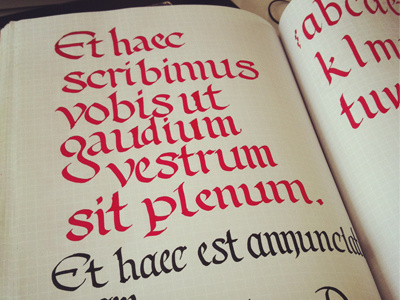 Et haec
scribimus
vobis ut
gaudium
vestrum
sit plenum.
Et haec est annuncia
abcde
klm
tuv